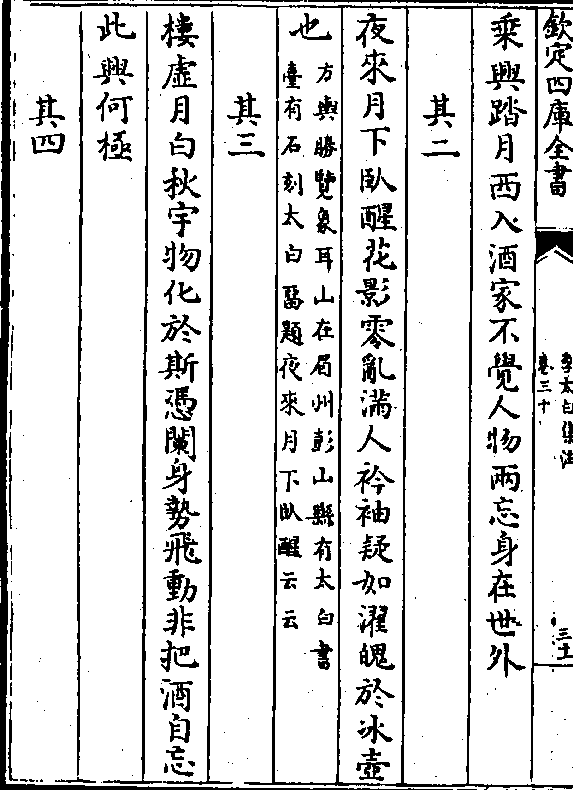 欽定四庫全書
李太白集注
卷三十
乗興踏月西入酒家不覺人物兩忘身在世外
其二
夜來月下臥醒花影零亂滿人衿袖疑如濯魄於冰壺
也
方輿勝覽象耳山在眉州彭山縣有太白書
臺有石刻太白留題夜來月下臥醒云云
其三
棲虛月白秋宇物化於斯憑闌身勢飛動非把酒自忘
此興何極
其四